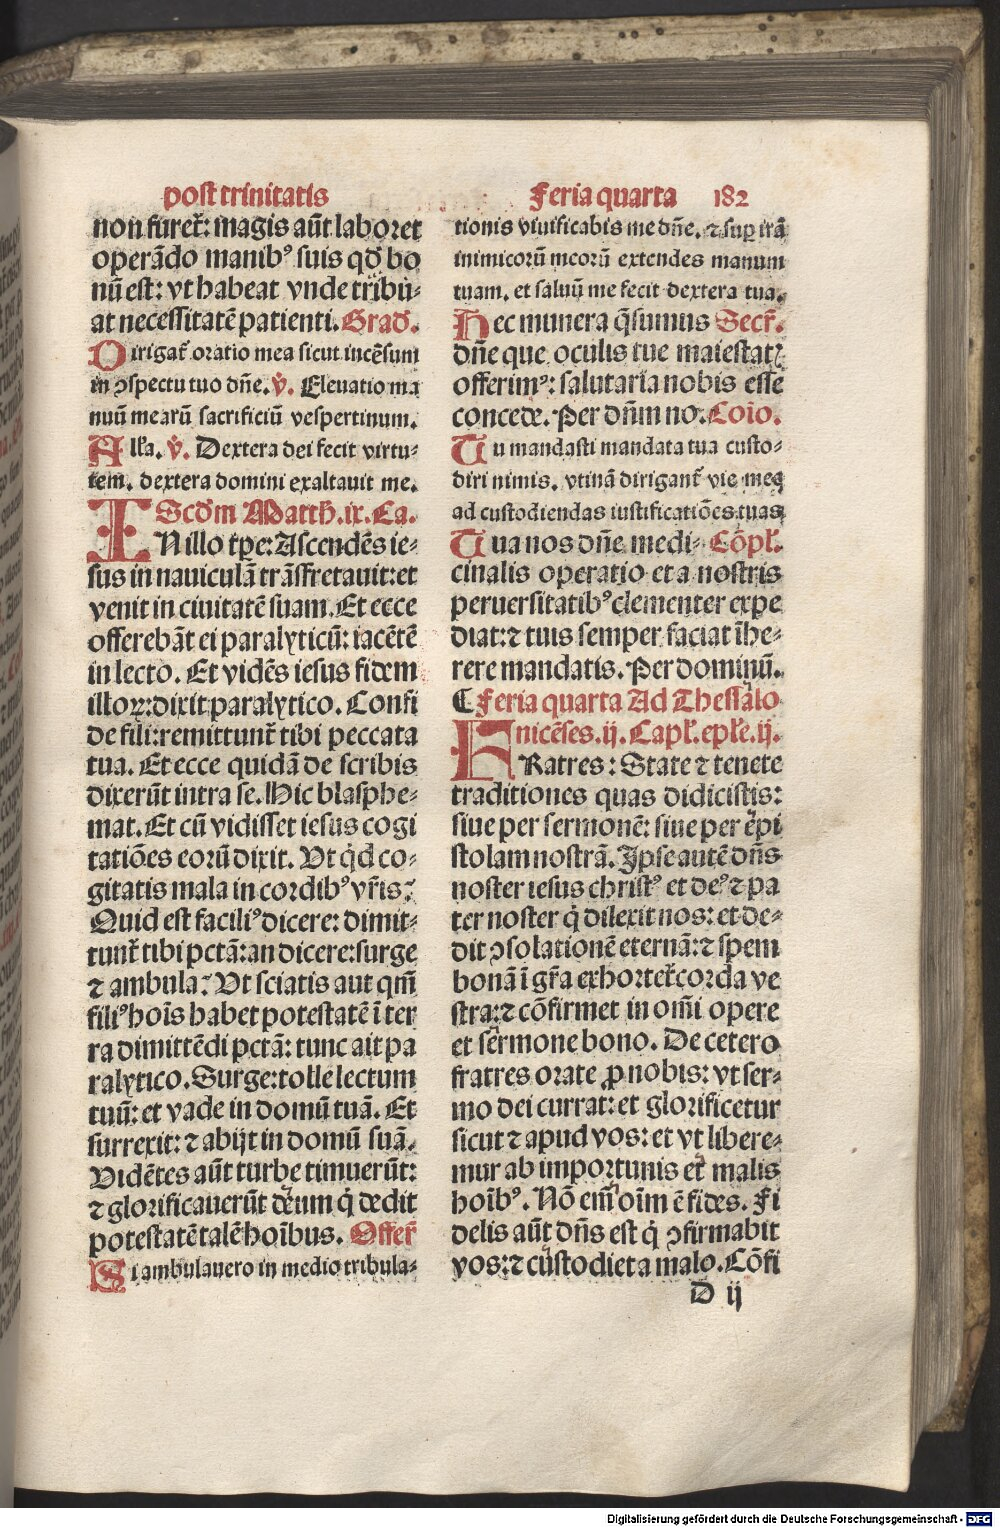 post trinitatis
non furet̃: magis aũt laboret
operãdo manibꝰ suis qd̃ bo
nũ est: vt habeat vnde tribu⸗
at necessitatẽ patienti. Grad̃.
Dirigat̃ oratio mea sicut incẽsum
in ꝯspectu tuo dñe. ꝟ. Eleuatio ma
nuũ mearũ sacrificiũ vespertinum.
All̃a. ꝟ. Dextera dei fecit virtu⸗
tem. dextera domini exaltauit me.
Scd̃m Matth. ix. Ca.
IN illo t̃pe: Ascendẽs ie⸗
sus in nauiculã trãsfretauit: et
venit in ciuitatẽ suam. Et ecce
offerebãt ei paralyticũ: iacẽtẽ
in lecto. Et vidẽs iesus fidem
illoꝝ: dixit paralytico. Confi
de fili: remittunt̃ tibi peccata
tua. Et ecce quidã de scribis
dixerũt intra se. Hic blasphe⸗
mat. Et cũ vidisset iesus cogi
tatiões eorũ dixit. Vt qd̃ co⸗
gitatis mala in cordibꝰ vr̃is?
Quid est faciliꝰ dicere: dimit⸗
tunt̃ tibi pctã: an dicere: surge
⁊ ambula? Vt sciatis aut qm̃
filiꝰ hoĩs habet potestatẽ ĩ ter
ra dimittẽdi pctã: tunc ait pa
ralytico. Surge: tolle lectum
tuũ: et vade in domũ tuã. Et
surrexit: ⁊ abijt in domũ suã.
Vidẽtes aũt turbe timuerũt:
⁊ glorificauerũt deum q̇ dedit
potestatẽ talẽ hoĩbus. Offer̃
Si ambulauero in medio tribula⸗
Feria quarta 182
tionis viuificabis me dñe. ⁊ suꝑ irã
inimicorũ meorũ extendes manum
tuam. et saluũ me fecit dextera tua.
Hec munera q̃sumus Secr̃.
dñe que oculis tue maiestatꝭ
offerimꝰ: salutaria nobis esse
concede. Per dñm no. Coĩo.
Tu mandasti mandata tua custo⸗
diri nimis. vtinã dirigant̃ vie meę
ad custodiendas iustificatiões tuas
Tua nos dñe medi⸗ Cõpl̃.
cinalis operatio et a nostris
peruersitatibꝰ clementer expe
diat: ⁊ tuis semper faciat ĩhe⸗
rere mandatis. Per dominũ.
¶ Feria quarta Ad Thessalo
nicẽses. ij. Capl̃. epl̃e. ij.
FRatres: State ⁊ tenete
traditiones quas didicistis:
siue per sermonẽ: siue per epi
stolam nostrã. Ipse autẽ dñs
noster iesus christꝰ et deꝰ ⁊ pa
ter noster q̇ dilexit nos: et de⸗
dit ꝯsolationẽ eternã: ⁊ spem
bonã ĩ gr̃a exhortet̃ corda ve
stra: ⁊ cõfirmet in om̃i opere
et sermone bono. De cetero
fratres orate ꝓ nobis: vt ser⸗
mo dei currat: et glorificetur
sicut ⁊ apud vos: et vt libere⸗
mur ab importunis et malis
hoĩbꝰ. Nõ em̃ oĩm ẽ fides. Fi
delis aũt dñs est q̇ ꝯfirmabit
vos: ⁊ custodiet a malo. Cõfi
D ij
Digitalisierung gefördert durch die Deutsche Forschungsgemeinschaft - DFG